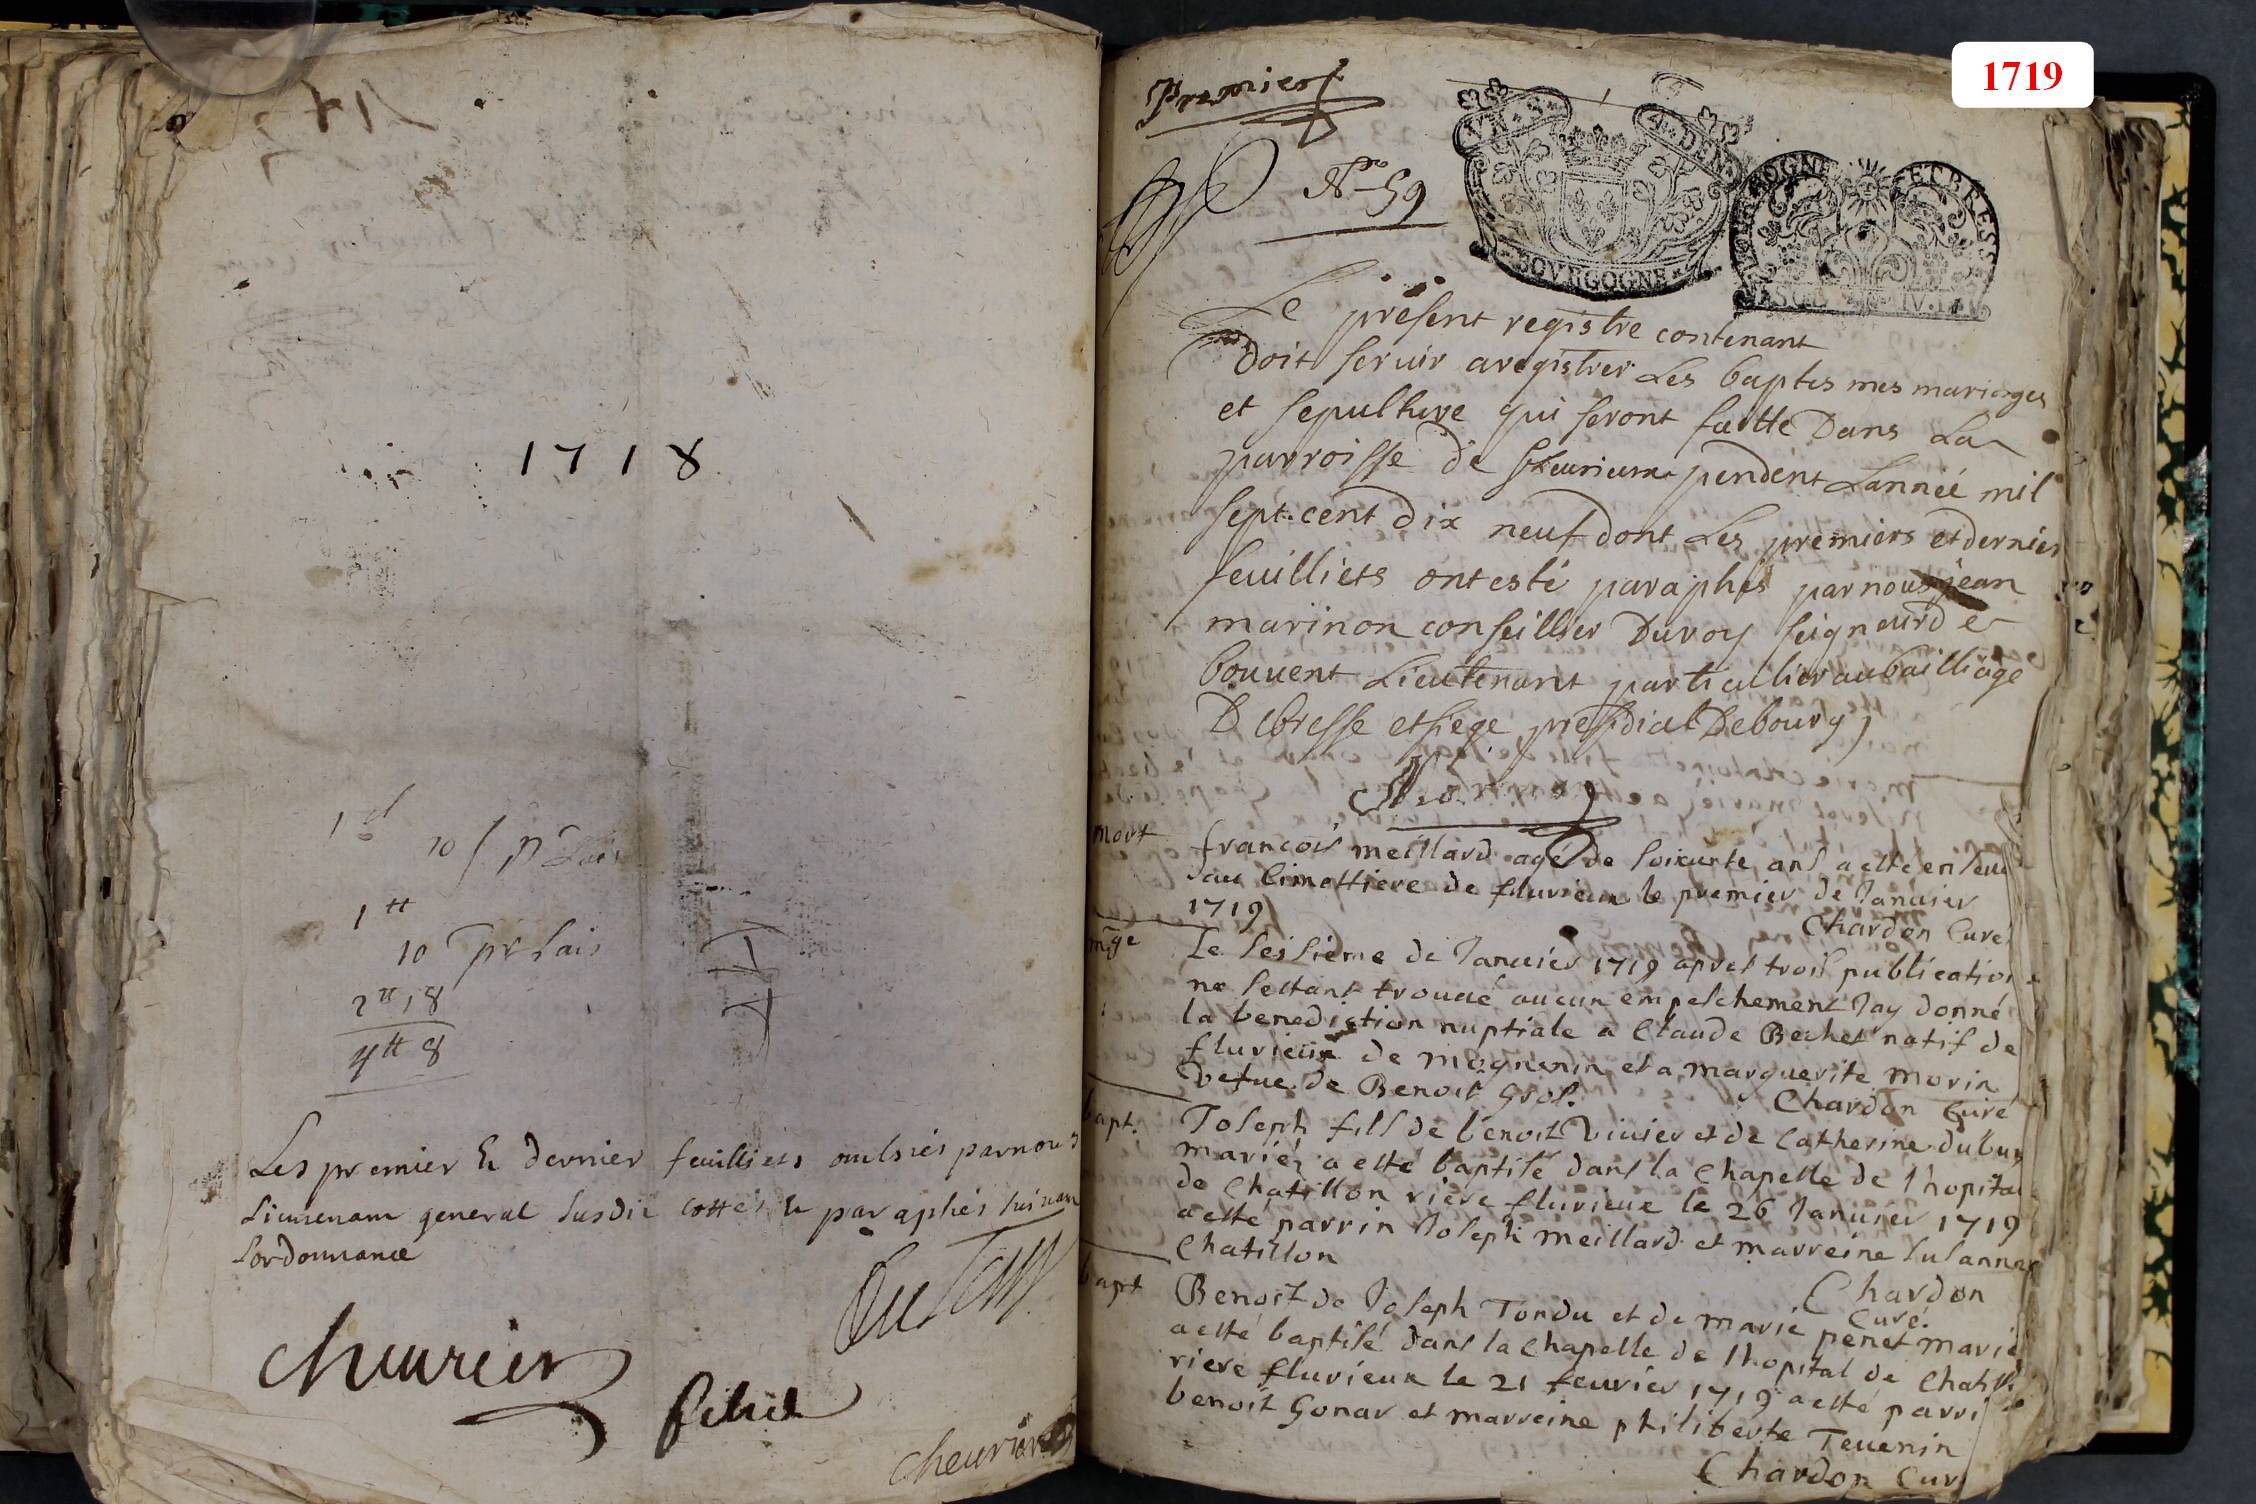 1718
10
1 tt
10
2 tt, 8
4 tt 8
Les premier & dernier feuilliets par nous
Lieutenant general susdit cottés & paraphés suivant
Lordonnance
cheurier
cheurier
1719
Premier
No 59
BOVRGOGNE
Le present registre contenant
Doit servir aregistrer Les baptes mes mariages
et sepulture qui seront faitte Dans La
parroisse de fleurieux pendent Lanneé mil
sept cent dix neuf dont Les premiers et dernier
feuilliets ont esté paraphés par nous jean
marinon conseillier Du roy seigneur de
bouvent Lieutenant particulier au bailliage
De bresse et siege presidial De bourg
mort
francois meillard agé de soixante ans a esté
dans Cimettiere de flurieux le premier de Januier
1719
Chardon Curé
mge
Le seisiéme de Januier 1719 apres trois publication
ne sestant trouvé aucun empeschement Jay donné
la benediction nuptiale a Claude Bechet natif de
flurieux de et a marguerite morin
Vefue de Benoit
Chardon Curé
bapt.
Joseph fils de benoit Vivier et de Catherine
mariéz a esté baptisé dans la Chapelle de l'hopital
de Chatillon riere flurieux le 26 Januier 1719
a esté parrin Joseph meillard et marreine Susanne
Chatillon
Chardon
Curé.
bapt
Benoit de Joseph Tondu et de marie penet marié
a esté baptisé dans la Chapelle de lhopital de Chatill
riere flurieux le 21 feurier 1719 a esté parri
benoit Gonar et marreine philiberte Teuenin
Chardon Cur